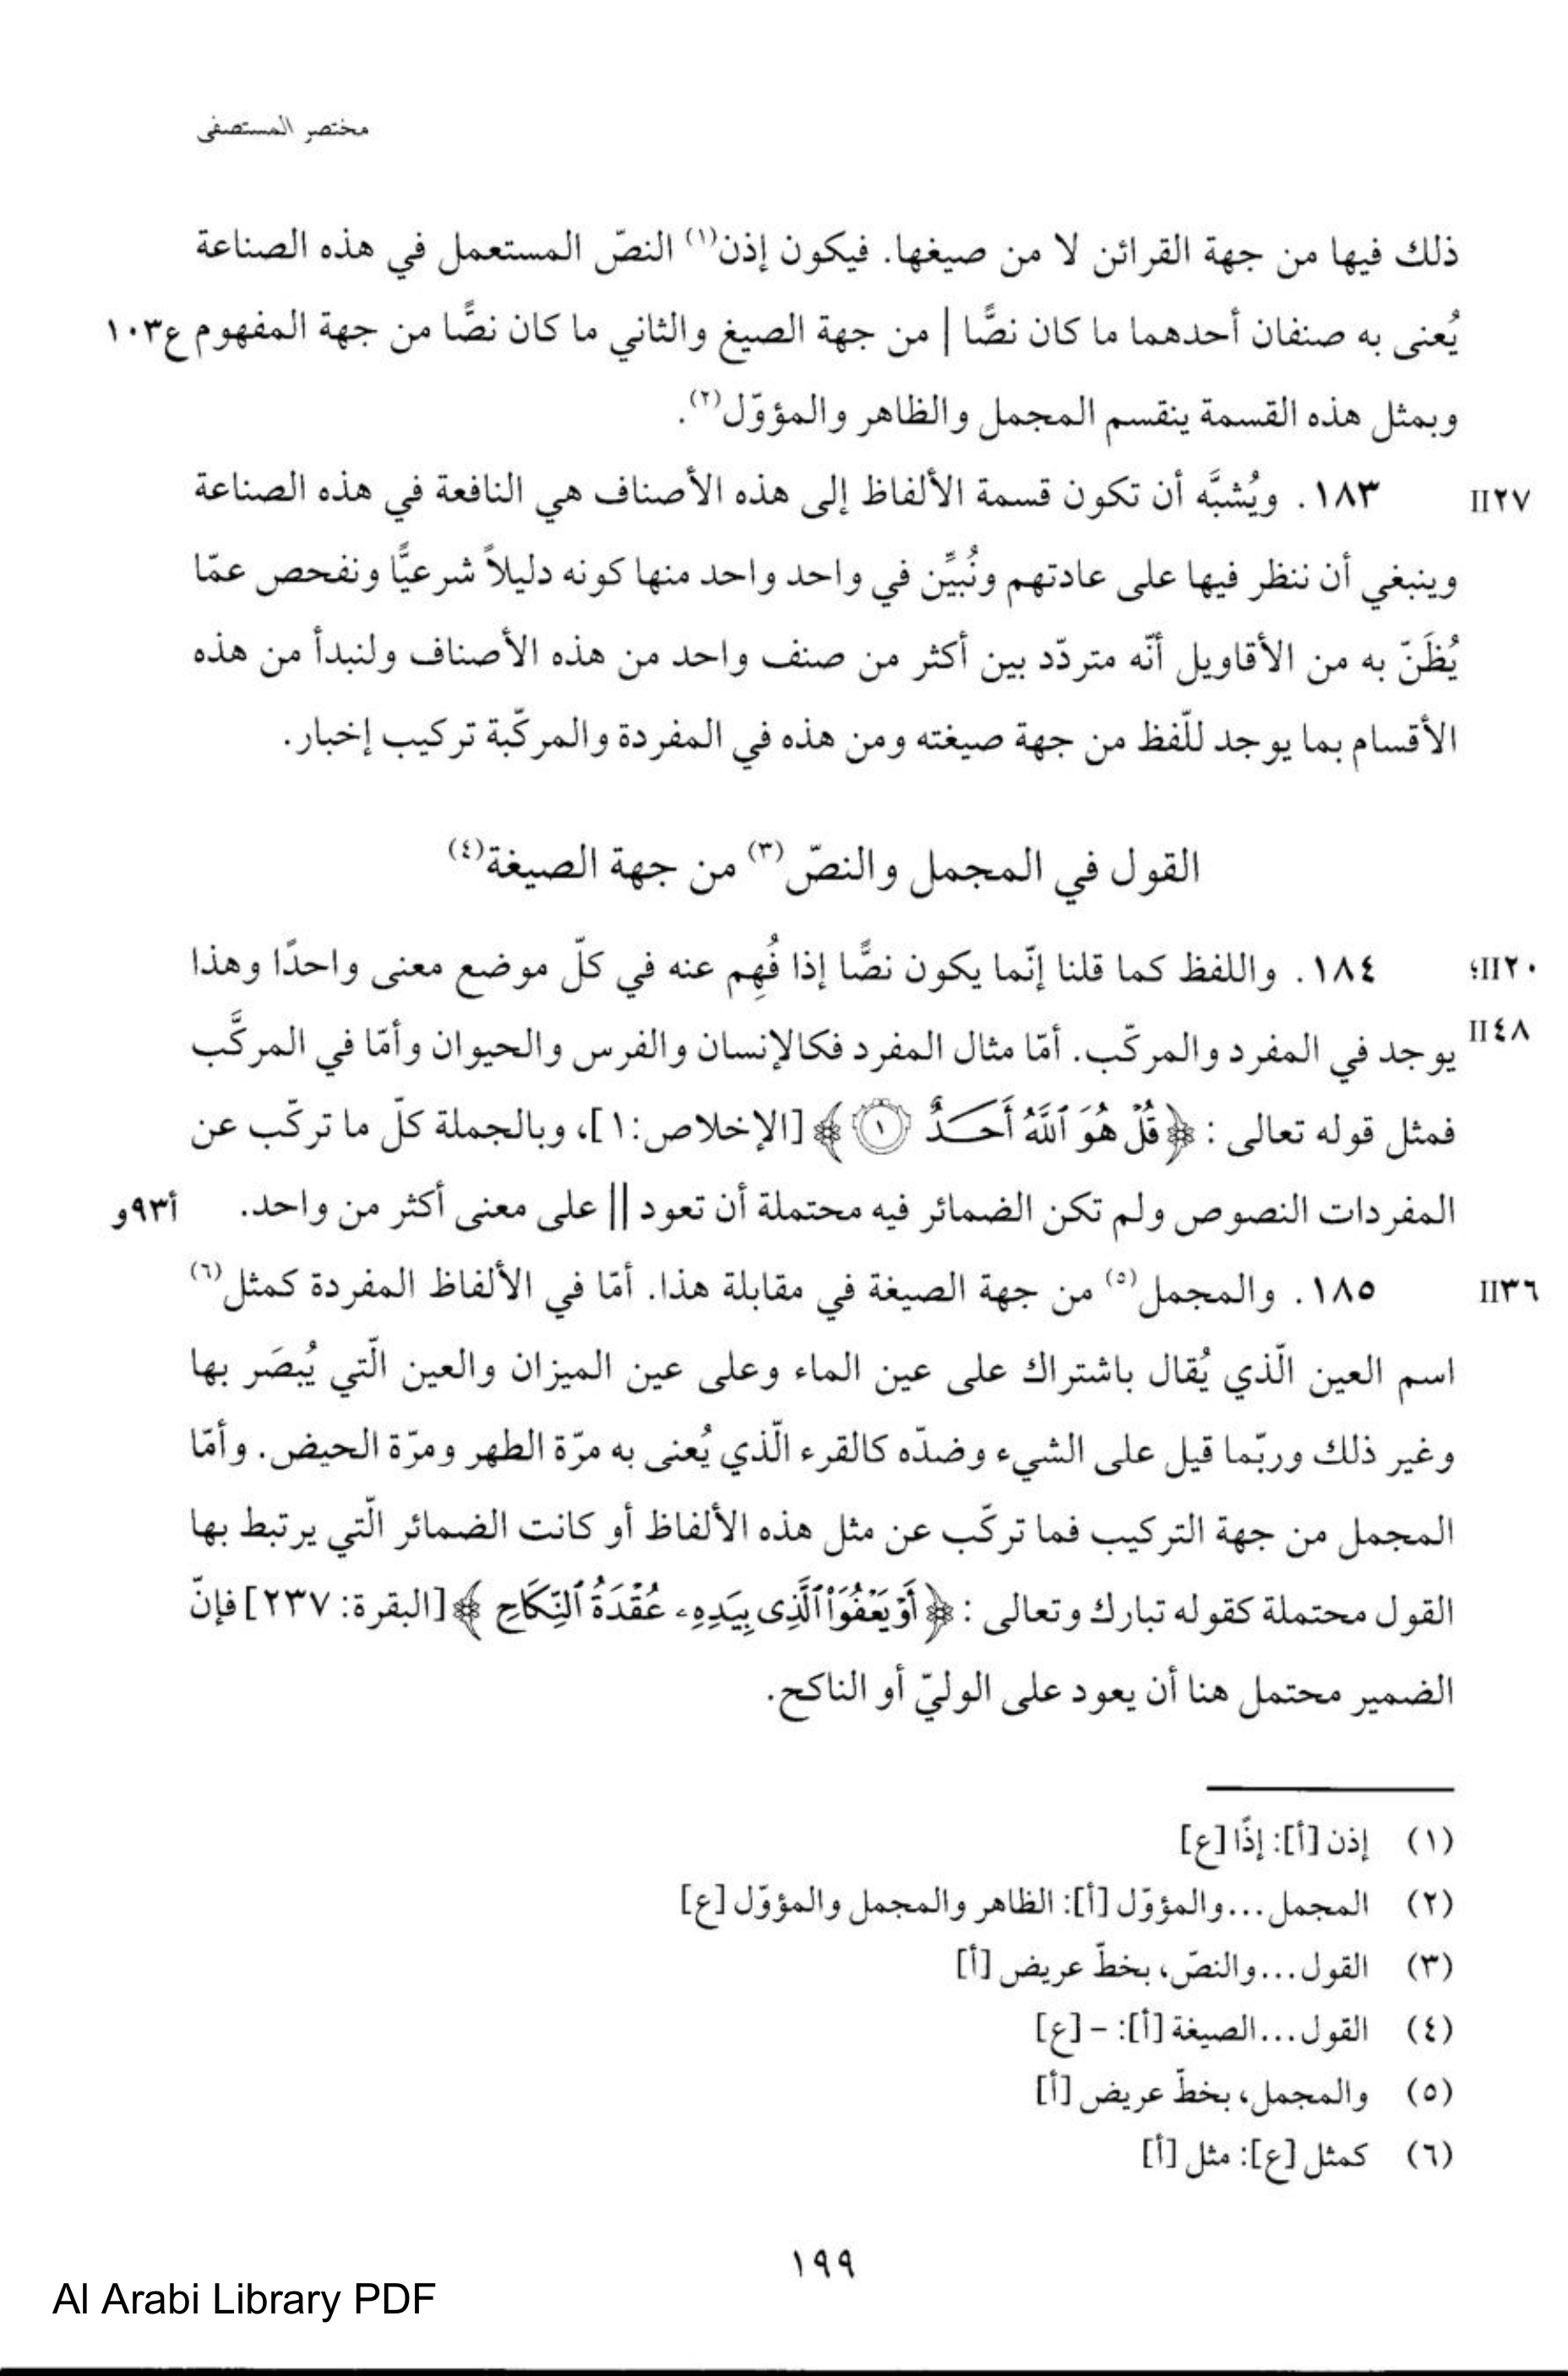 مختصر المستصفى
ذلك فيها من جهة القرائن لا من صيغها. فيكون إذن(١) النصّ المستعمل في هذه الصناعة
يُعنى به صنفان أحدهما ما كان نصًّا | من جهة الصيغ والثاني ما كان نصًّا من جهة المفهوم ع١٠٣
وبمثل هذه القسمة ينقسم المجمل والظاهر والمؤوّل(٢).
II٢٧ ١٨٣. ويُشبَّه أن تكون قسمة الألفاظ إلى هذه الأصناف هي النافعة في هذه الصناعة
وينبغي أن ننظر فيها على عادتهم ونُبيِّن في واحد واحد منها كونه دليلاً شرعيًّا ونفحص عمّا
يُظَنّ به من الأقاويل أنّه متردّد بين أكثر من صنف واحد من هذه الأصناف ولنبدأ من هذه
الأقسام بما يوجد للّفظ من جهة صيغته ومن هذه في المفردة والمركّبة تركيب إخبار.
القول في المجمل والنصّ(٣) من جهة الصيغة(٤)
II٢٠؛ ١٨٤. واللفظ كما قلنا إنّما يكون نصًّا إذا فُهِم عنه في كلّ موضع معنى واحدًا وهذا
II٤٨ يوجد في المفرد والمركّب. أمّا مثال المفرد فكالإنسان والفرس والحيوان وأمّا في المركَّب
فمثل قوله تعالى : ﴿قُلْ هُوَ ٱللَّهُ أَحَدٌ ١﴾ [الإخلاص:١]، وبالجملة كلّ ما تركّب عن
المفردات النصوص ولم تكن الضمائر فيه محتملة أن تعود || على معنى أكثر من واحد. أ٩٣و
II٣٦ ١٨٥. والمجمل(٥) من جهة الصيغة في مقابلة هذا. أمّا في الألفاظ المفردة كمثل(٦)
اسم العين الّذي يُقال باشتراك على عين الماء وعلى عين الميزان والعين الّتي يُبصَر بها
وغير ذلك وربّما قيل على الشيء وضدّه كالقرء الّذي يُعنى به مرّة الطهر ومرّة الحيض. وأمّا
المجمل من جهة التركيب فما تركّب عن مثل هذه الألفاظ أو كانت الضمائر الّتي يرتبط بها
القول محتملة كقوله تبارك وتعالى : ﴿أَوْ يَعْفُوَا۟ ٱلَّذِى بِيَدِهِۦ عُقْدَةُ ٱلنِّكَاحِ﴾ [البقرة: ٢٣٧] فإنّ
الضمير محتمل هنا أن يعود على الوليّ أو الناكح.
(١) إذن [أ]: إذًا [ع]
(٢) المجمل...والمؤوّل [أ]: الظاهر والمجمل والمؤوّل [ع]
(٣) القول...والنصّ، بخطّ عريض [أ]
(٤) القول...الصيغة [أ]: – [ع]
(٥) والمجمل، بخطّ عريض [أ]
(٦) كمثل [ع]: مثل [أ]
١٩٩
Al Arabi Library PDF